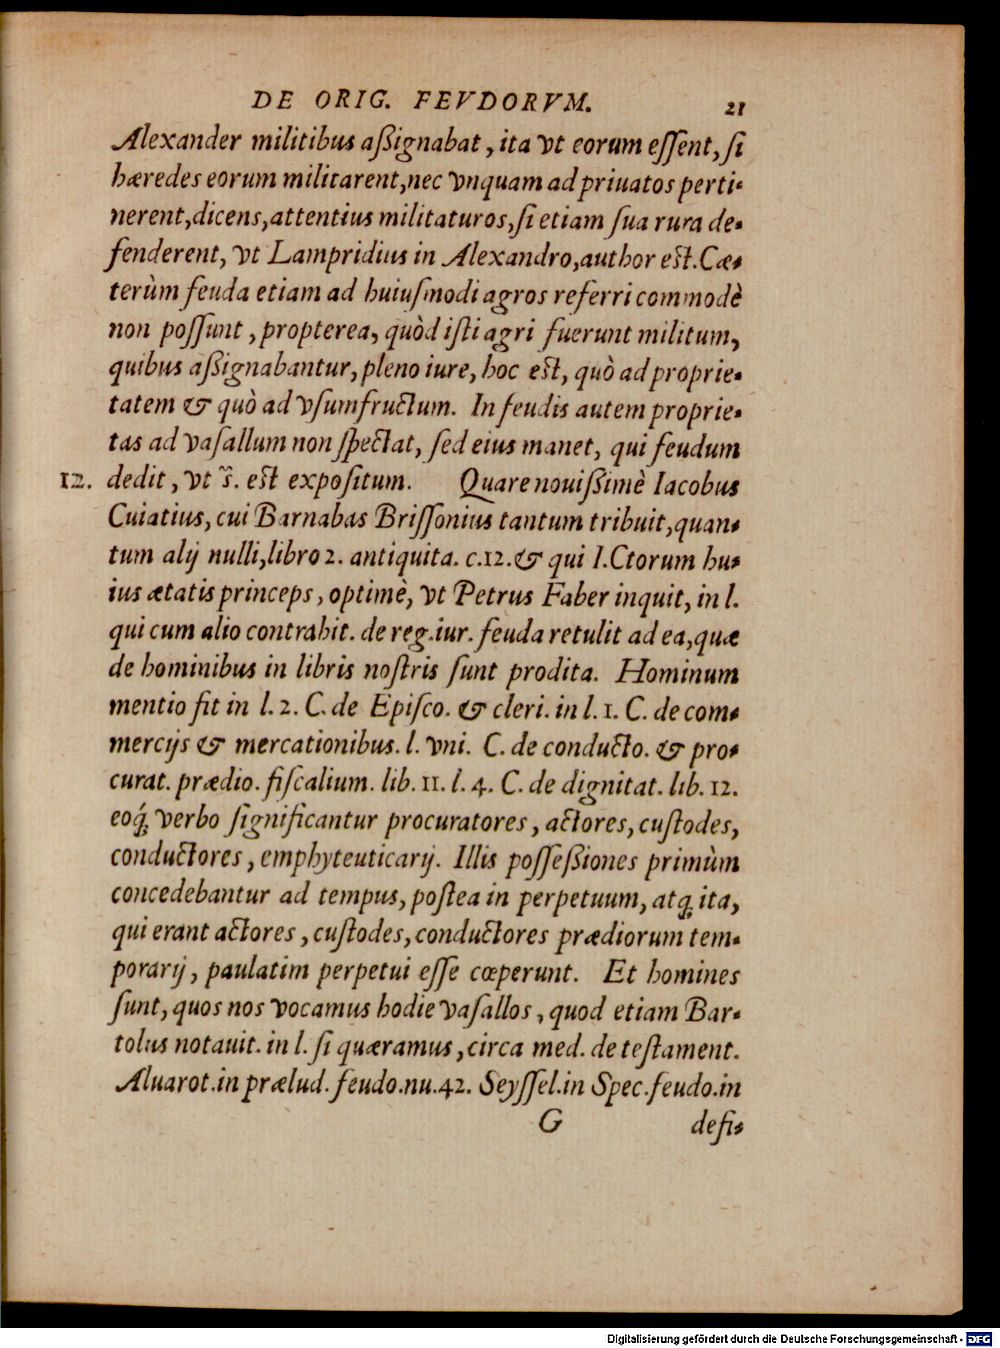 DE ORIG. FEVDORVM. 21
Alexander militibus aßignabat, ita vt eorum eſſent, ſi
hæredes eorum militarent, nec vnquam ad priuatos perti-
nerent, dicens, attentius militaturos, ſi etiam ſua rura de-
fenderent, vt Lampridius in Alexandro, author est. Cæ-
terùm feuda etiam ad huiuſmodi agros referri commodè
non poſſunt, propterea, quòd iſti agri fuerunt militum,
quibus aßignabantur, pleno iure, hoc est, quò ad proprie-
tatem & quò ad vſumfructum. In feudis autem proprie-
tas ad vaſallum non ſpectat, ſed eius manet, qui feudum
12. dedit, vt s̃. est expoſitum. Quare nouißimè Iacobus
Cuiatius, cui Barnabas Briſſonius tantum tribuit, quan-
tum alij nulli, libro 2. antiquita. c.12. & qui I.Ctorum hu-
ius ætatis princeps, optimè, vt Petrus Faber inquit, in l.
qui cum alio contrahit. de reg. iur. feuda retulit ad ea, quæ
de hominibus in libris noſtris ſunt prodita. Hominum
mentio fit in l. 2. C. de Epiſco. & cleri. in l. 1. C. de com-
mercijs & mercationibus. l. vni. C. de conducto. & pro-
curat. prædio. fiſcalium. lib. 11. l. 4. C. de dignitat. lib. 12.
eoq́; verbo ſignificantur procuratores, actores, cuſtodes,
conductores, emphyteuticarij. Illis poſſeßiones primùm
concedebantur ad tempus, poſtea in perpetuum, atq; ita,
qui erant actores, cuſtodes, conductores prædiorum tem-
porarij, paulatim perpetui eſſe cœperunt. Et homines
ſunt, quos nos vocamus hodie vaſallos, quod etiam Bar-
tolus notauit. in l. ſi quæramus, circa med. de teſtament.
Aluarot. in prælud. feudo. nu. 42. Seyſſel. in Spec. feudo. in
G defi-
Digitalisierung gefördert durch die Deutsche Forschungsgemeinschaft - DFG